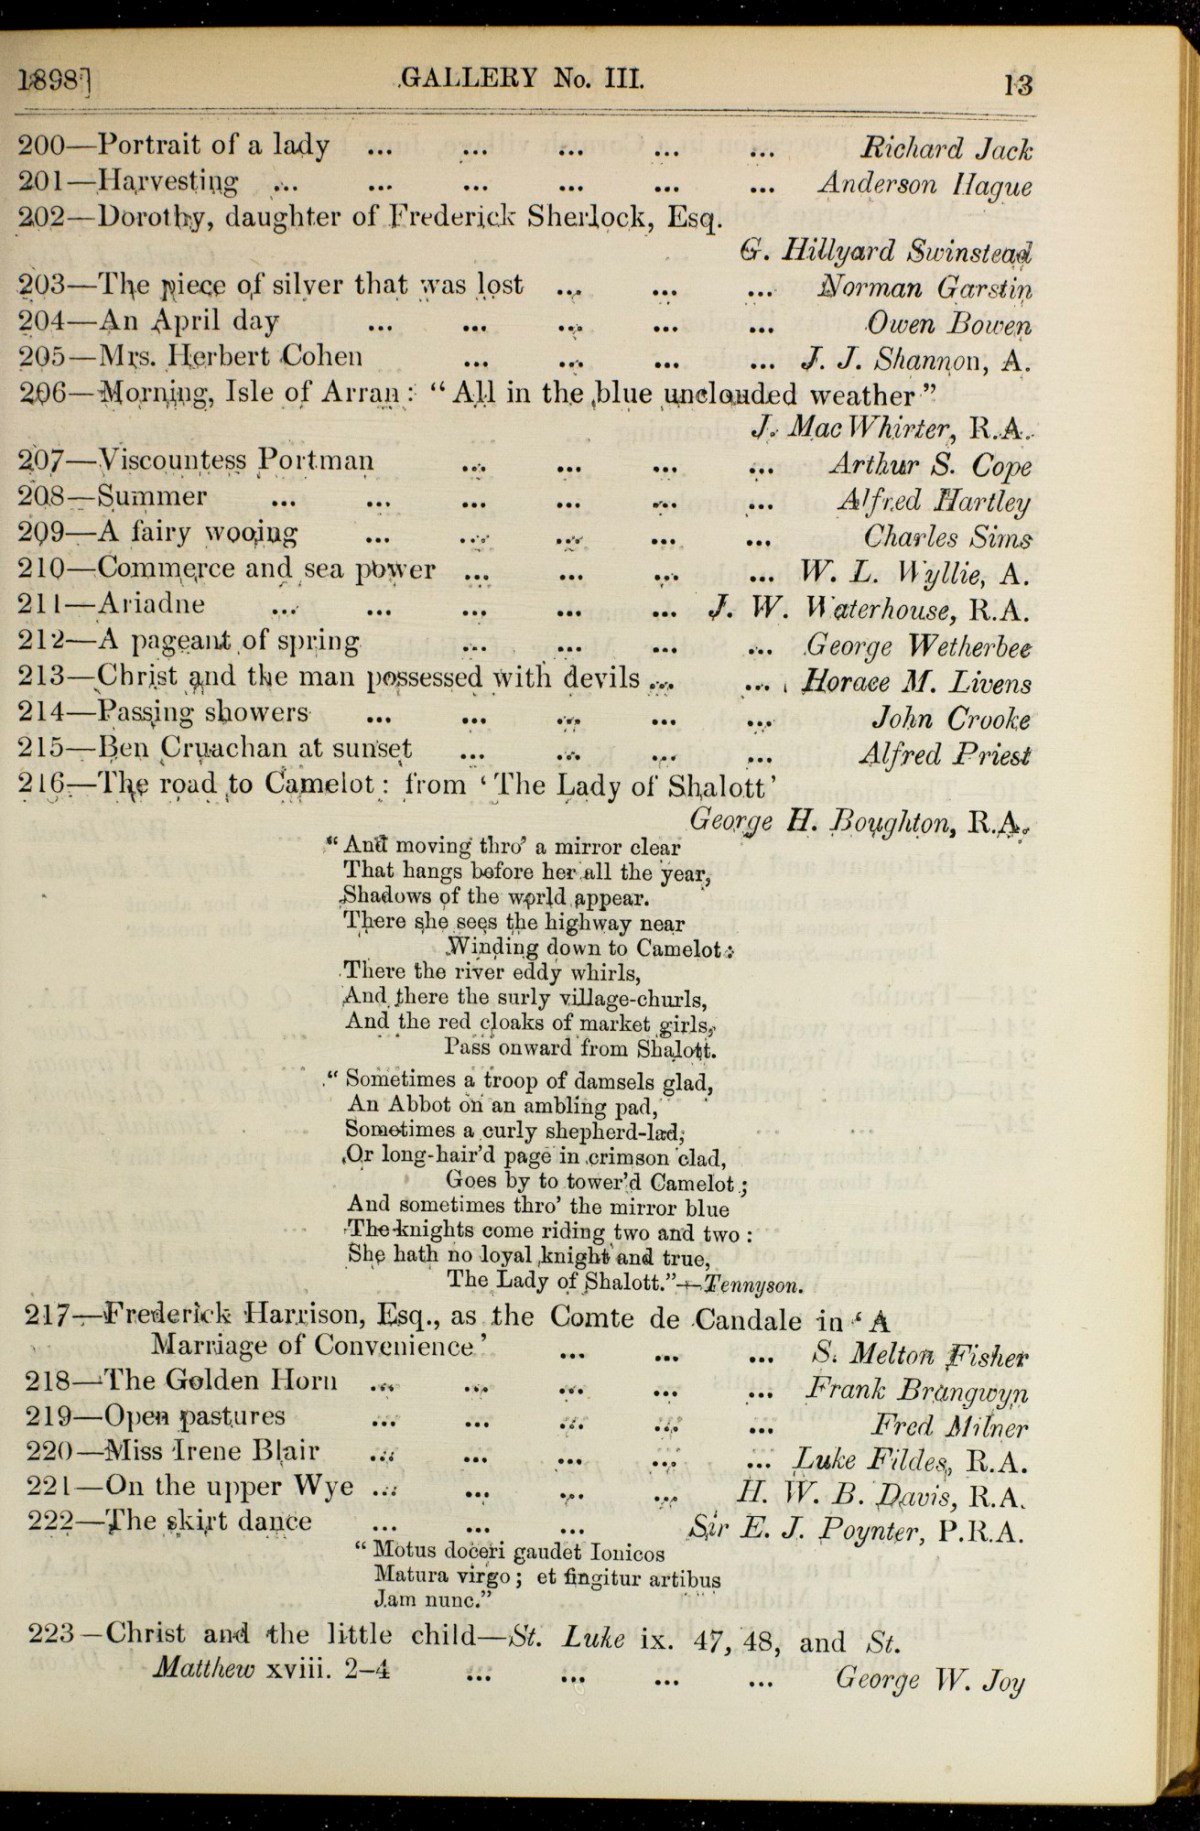 1898] GALLERY No. III. 13
200—Portrait of a lady ... ... ... ... ... Richard Jack
201—Harvesting ... ... ... ... ... ... Anderson Hague
202—Dorothy, daughter of Frederick Sherlock, Esq.
G. Hillyard Swinstead
203—The piece of silver that was lost ... ... ... Norman Garstin
204—An April day ... ... ... ... ... Owen Bowen
205—Mrs. Herbert Cohen ... ... ... ... J. J. Shannon, A.
206—Morning, Isle of Arran: “All in the blue unclouded weather”
J. MacWhirter, R.A.
207—Viscountess Portman ... ... ... ... Arthur S. Cope
208—Summer ... ... ... ... ... ... Alfred Hartley
209—A fairy wooing ... ... ... ... ... Charles Sims
210—Commerce and sea power ... ... ... ... W. L. Wyllie, A.
211—Ariadne ... ... ... ... ... J. W. Waterhouse, R.A.
212—A pageant of spring ... ... ... ... George Wetherbee
213—Christ and the man possessed with devils ... ... Horace M. Livens
214—Passing showers ... ... ... ... ... John Crooke
215—Ben Cruachan at sunset ... ... ... ... Alfred Priest
216—The road to Camelot: from ‘The Lady of Shalott’
George H. Boughton, R.A.
“And moving thro’ a mirror clear
That hangs before her all the year,
Shadows of the world appear.
There she sees the highway near
Winding down to Camelot:
There the river eddy whirls,
And there the surly village-churls,
And the red cloaks of market girls,
Pass onward from Shalott.
“Sometimes a troop of damsels glad,
An Abbot on an ambling pad,
Sometimes a curly shepherd-lad,
Or long-hair’d page in crimson clad,
Goes by to tower’d Camelot;
And sometimes thro’ the mirror blue
The knights come riding two and two:
She hath no loyal knight and true,
The Lady of Shalott.”—Tennyson.
217—Frederick Harrison, Esq., as the Comte de Candale in ‘A
Marriage of Convenience’ ... ... ... S. Melton Fisher
218—The Golden Horn ... ... ... ... ... Frank Brangwyn
219—Open pastures ... ... ... ... ... Fred Milner
220—Miss Irene Blair ... ... ... ... ... Luke Fildes, R.A.
221—On the upper Wye ... ... ... ... H. W. B. Davis, R.A.
222—The skirt dance ... ... ... Sir E. J. Poynter, P.R.A.
“Motus doceri gaudet Ionicos
Matura virgo; et fingitur artibus
Jam nunc.”
223—Christ and the little child—St. Luke ix. 47, 48, and St.
Matthew xviii. 2–4 ... ... ... ... George W. Joy